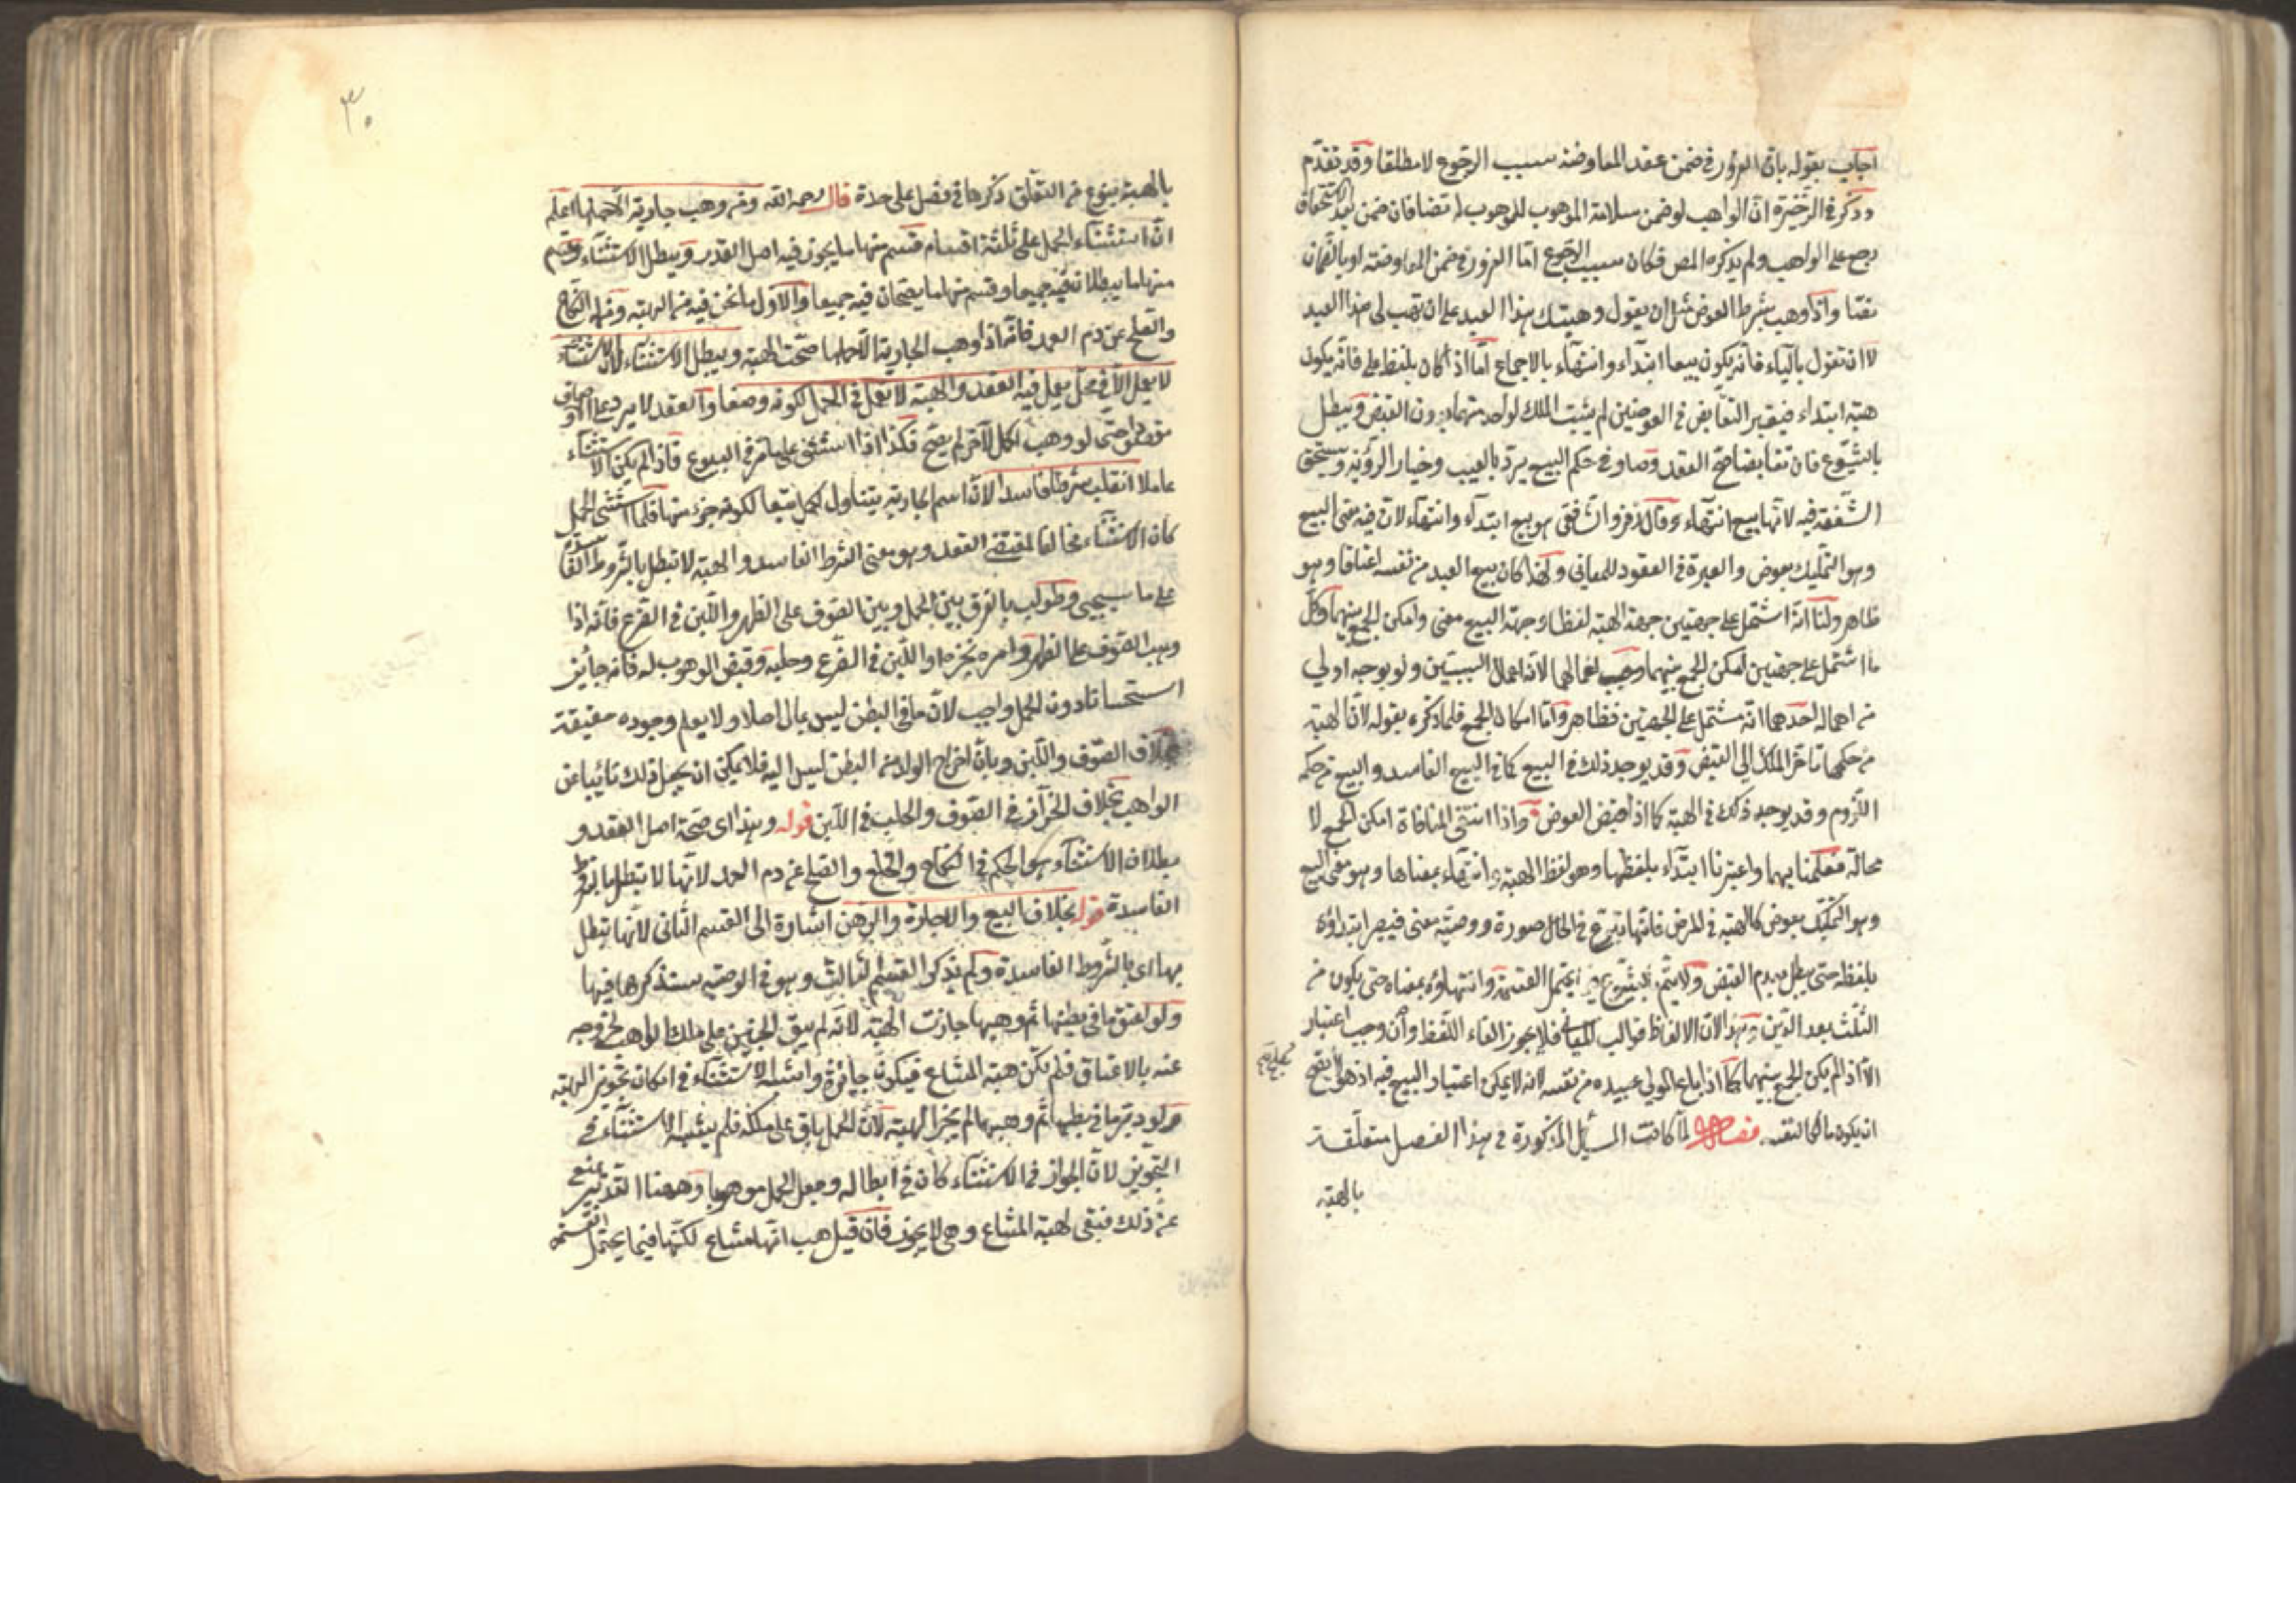 اجاب بقوله بان الغرور في ضمن عقد المعاوضة سبب الرجوع لا مطلقا وقد تقدم
وذكر في الذخيرة ان الواهب لو ضمن سلامة الموهوب للموهوب له نصا فان ضمن بعد الاستحقاق
رجع على الواهب ولم يذكره المص فكان سبب الرجوع اما الغرور في ضمن المعاوضة او بالضمان
نصا واذا وهب بشرط العوض مثل ان يقول وهبتك هذا العبد على ان تهب لي هذا العبد
لا ان تقول بالباء فانه يكون بيعا ابتداء وانتهاء بالاجماع اما اذا كان بلفظ على فانه يكون
هبة ابتداء فيعتبر التقابض في العوضين لم يثبت الملك لواحد منهما بدون القبض ويبطل
بالشيوع فان تقابضا صح العقد وصار في حكم البيع يرد بالعيب وخيار الرؤية ويستحق
الشفعة فيه لانها بيع انتهاء وقال زفر والشافعي هو بيع ابتداء وانتهاء لان فيه معنى البيع
وهو التمليك بعوض والعبرة في العقود للمعاني ولهذا كان بيع العبد من نفسه اعتاقا وهو
ظاهر ولنا انه اشتمل على جهتين جهة الهبة لفظا وجهة البيع معنى وامكن الجمع بينهما وكل
ما اشتمل على جهتين امكن الجمع بينهما وجب اعمالهما لان اعمال السببين ولو بوجه اولى
من اهمال احدهما انه مشتمل على الجهتين فظاهر واما امكان الجمع فلما ذكره بقوله لان الهبة
من حكمها تاخر الملك الى القبض وقد يوجد ذلك في البيع كما في البيع الفاسد والبيع من حكمه
اللزوم وقد يوجد ذلك في الهبة كما اذا قبض العوض واذا انتفى المنافاة امكن الجمع لا
محالة فعملنا بهما واعتبرنا ابتداء بلفظها وهو لفظ الهبة وانتهاء بمعناها وهو معنى البيع
وهو التمليك بعوض كالهبة في المرض فانها تبرع في الحال صورة ووصية معنى فيعتبر ابتداؤه
بلفظه حتى يبطل بعدم القبض ولا يتم بالشيوع فيما يحتمل القسمة وانتهاؤه بمعناه حتى يكون من
الثلث بعد الدين وهذا لان الالفاظ قوالب المعاني فلا يجوز الغاء اللفظ وان وجب اعتبار
الا اذا لم يكن الجمع بينهما كما اذا باع المولى عبيده من نفسه لانه لا يمكن اعتبار البيع فيه اذ هو لا يصح
ان يكون مالكا لنفسه فصل لما كانت المسائل المذكورة في هذا الفصل متعلقة
بالهبة
٣٠
بالهبة بنوع من التعلق ذكرها في فصل على حدة قال رحمه الله ومن وهب جارية الا حملها اعلم
ان استثناء الحمل على ثلثة اقسام قسم منها ما يجوز فيه اصل العقد ويبطل الاستثناء وقسم
منها ما يبطلان فيه جميعا وقسم منها ما يصحان فيه جميعا والاول ما نحن فيه من الهبة ومنه النكاح
والصلح عن دم العمد فانه اذا وهب الجارية الا حملها صحت الهبة ويبطل الاستثناء لان الاستثناء
لا يعمل الا في محل يعمل فيه العقد والهبة لا تعمل في الحمل لكونه وصفا والعقد لا يرد على الاوصاف
مقصودا حتى لو وهب الحمل لآخر لم يصح فكذا اذا استثنى على ما مر في البيوع فاذا لم يكن الاستثناء
عاملا انقلب شرطا فاسدا لان اسم الجارية يتناول الحمل تبعا لكونه جزء منها فلما استثنى الحمل
كان الاستثناء مخالفا لمقتضى العقد وهو معنى الشرط الفاسد والهبة لا تبطل بالشروط الفاسدة
على ما سيجيئ وطولب بالفرق بين الحمل وبين الصوف على الظهر واللبن في الضرع فانه اذا
وهب الصوف على الظهر وامره بجزه او اللبن في الضرع وحلبه وقبض الموهوب له فانه جايز
استحسانا دون الحمل واجيب لان ما في البطن ليس بمال اصلا ولا يعلم وجوده حقيقة
بخلاف الصوف واللبن وبان اخراج الولد من البطن ليس اليه فلا يمكن ان يجعل ذلك نائبا عن
الواهب بخلاف الجزاز في الصوف والحلب في اللبن قوله وهذا اى صحة اصل العقد و
بطلان الاستثناء هو الحكم في النكاح والخلع والصلح عن دم العمد لانها لا تبطل بالشروط
الفاسدة قوله بخلاف البيع والاجارة والرهن اشارة الى القسم الثاني لانها تبطل
بها اى بالشروط الفاسدة ولم يذكر القسم الثالث وهو في الوصية سنذكرها فيها
ولو اعتق ما في بطنها ثم وهبها جازت الهبة لانه لم يبق الجنين على ملك الواهب لخروجه
عنه بالاعتاق فلم تكن هبة المشاع فيكون جائزة واشبه الاستثناء في امكان تجويز الهبة
ولو دبر ما في بطنها ثم وهبها لم يجز الهبة لان الحمل باق على ملكه فلم يشبه الاستثناء في
التجويز لان الجواز في الاستثناء كان في ابطاله وجعل الحمل موهوبا وههنا التدبير يمنع
عن ذلك فبقي هبة المشاع وهي لا يجوز فان قيل هب انها مشاع لكنها فيما يحتمل القسمة